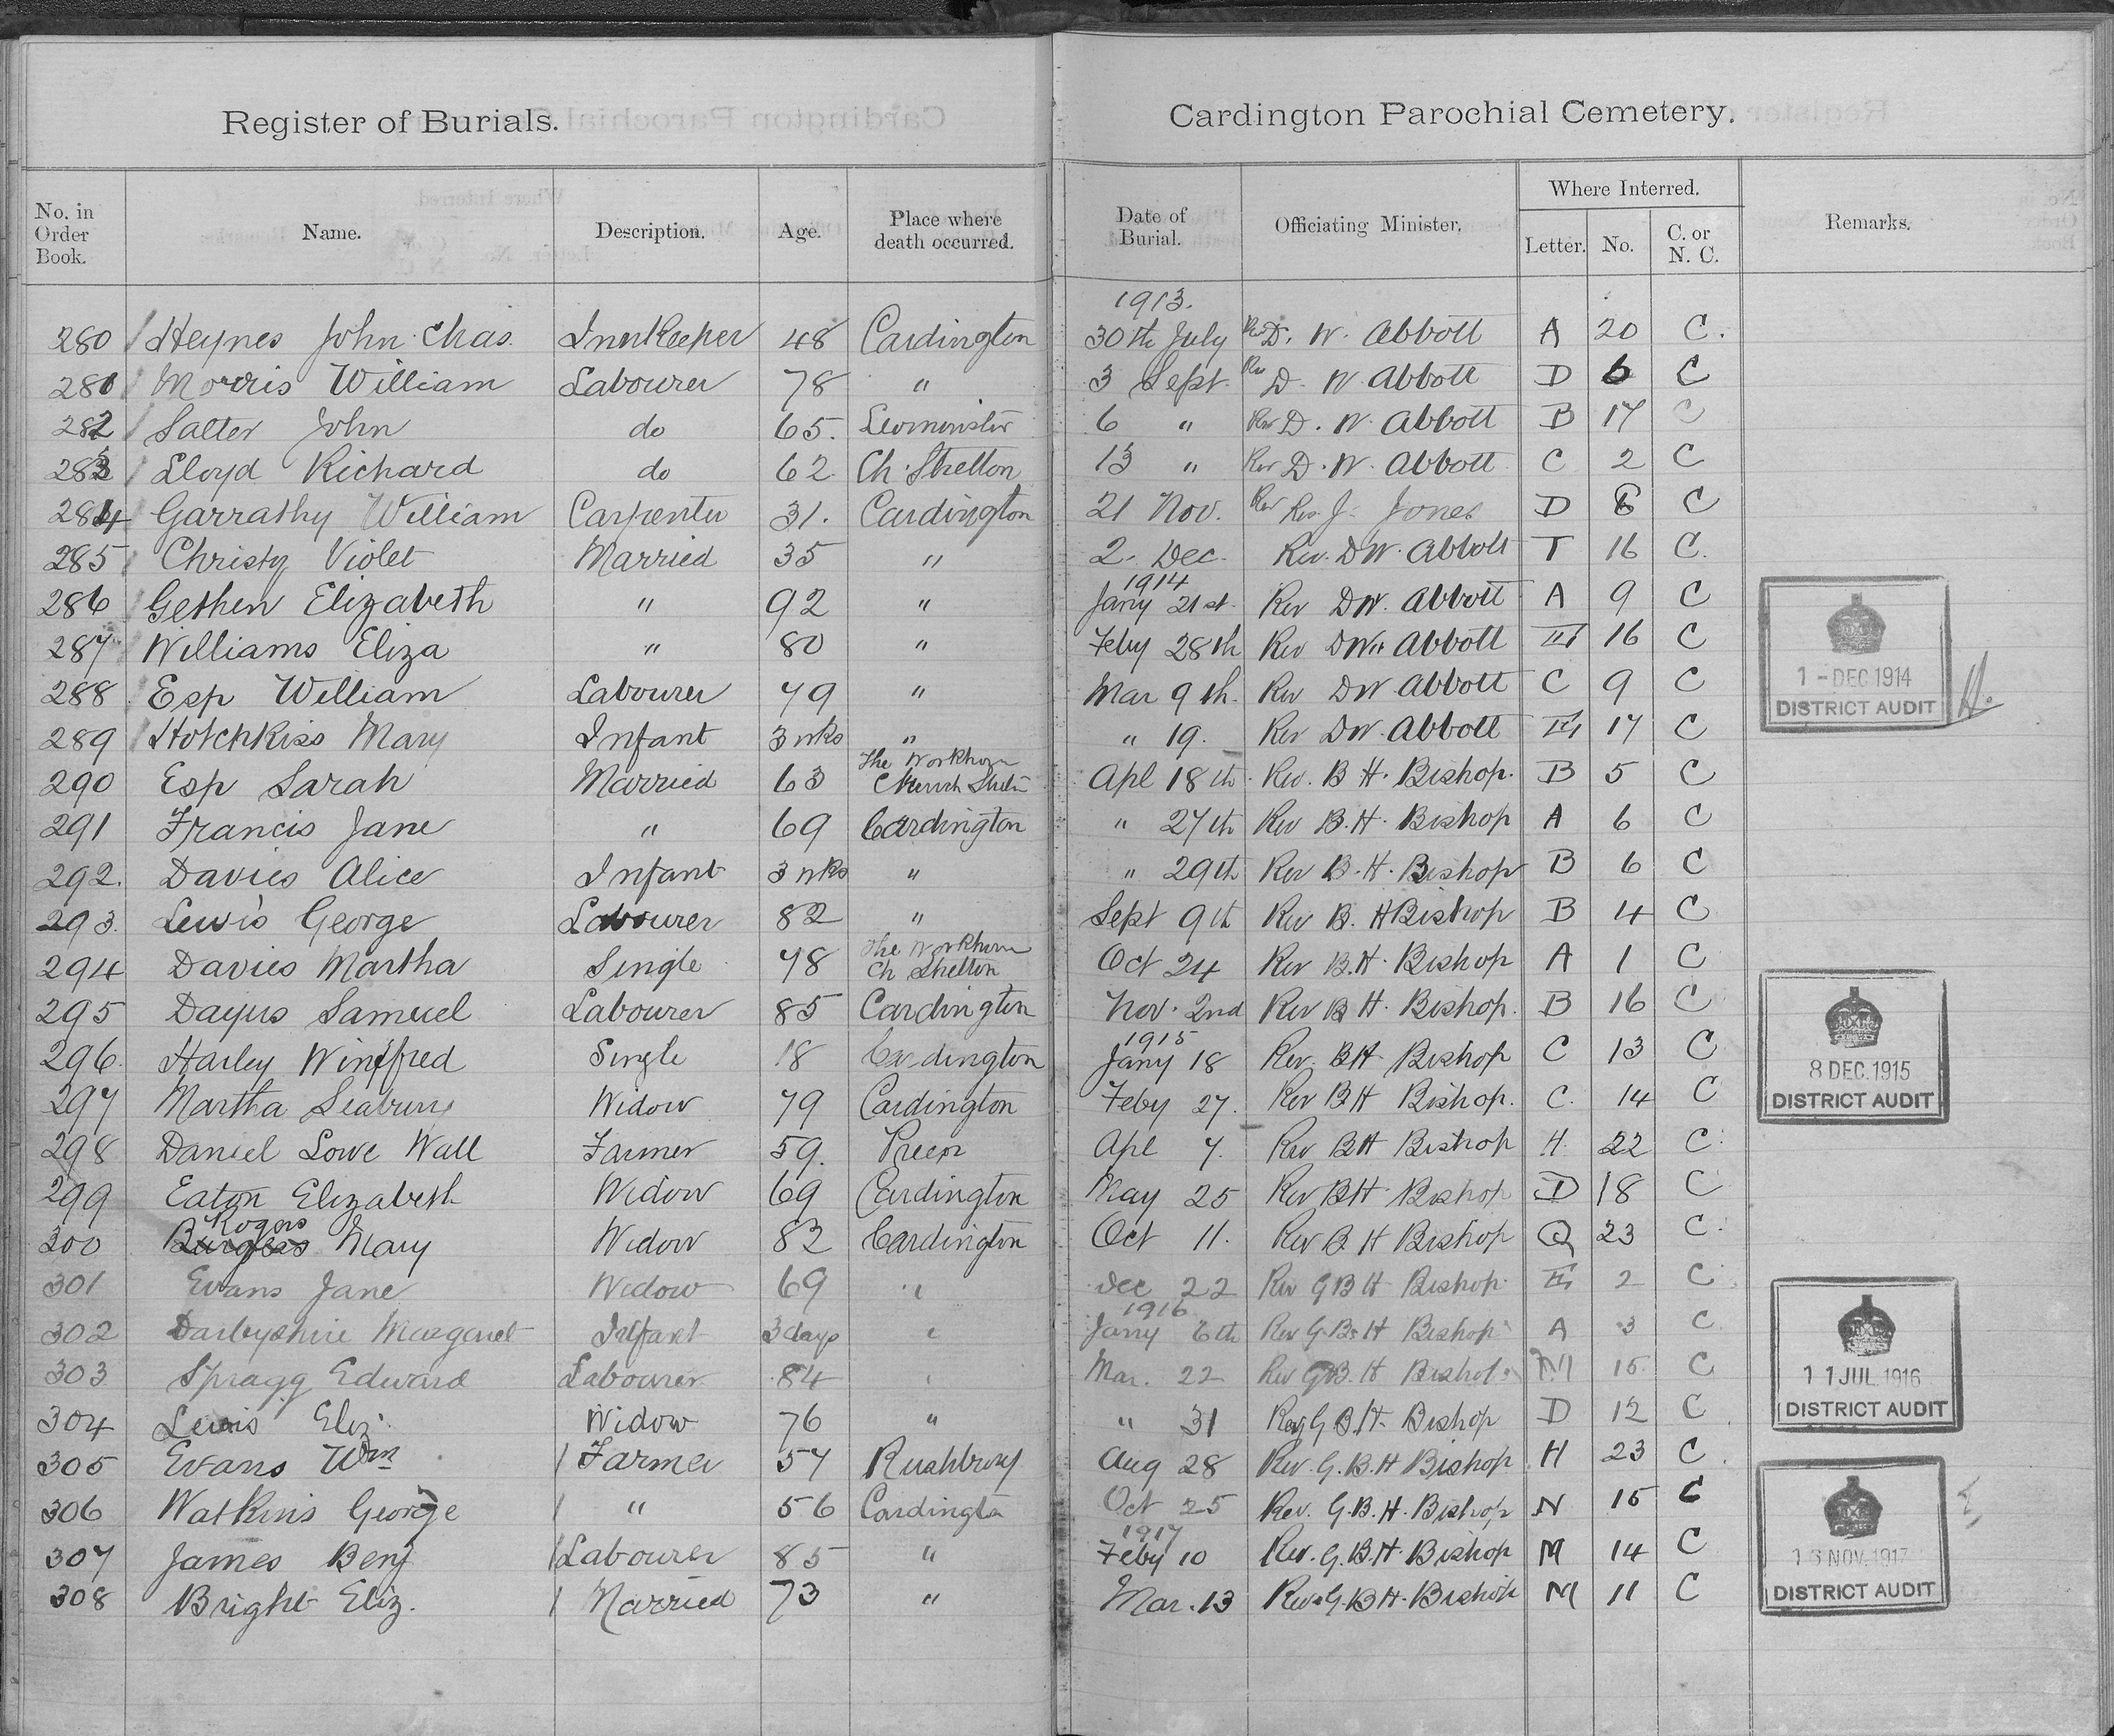 Register of Burials.
Cardington Parochial Cemetery.
No. in Order Book. Name. Description. Age. Place where death occurred. Date of Burial. Officiating Minister. Where Interred. Letter. No. C. or N. C. Remarks.
1913.
280 Heynes John Chas. InnKeeper 48 Cardington 30th July Rev D. W. Abbott A 20 C.
281 Morris William Labourer 78 " 3 Sept. Rev D. W Abbott D 6 C
282 Salter John do 65. Leominster 6 " Rev D. W. Abbott B 17 C
283 Lloyd Richard do 62. Ch. Stretton 13 " Rev D. W. Abbott C 2 C
284 Garrathy William Carpenter 31. Cardington 21 Nov. Rev Rev. J. Jones D 6 C
285 Christy Violet Married 35 " 2. Dec. Rev. D W. Abbott T 16 C.
1914
286 Gethen Elizabeth " 92 " Jany 21st. Rev D W. Abbott A 9 C
287 Williams Eliza " 80 " Feby 28th Rev D W. Abbott 16 C
288 Esp William Labourer 79 " Mar 9th. Rev D W Abbott C 9 C
289 Hotchkiss Mary Infant 3 wks " " 19. Rev D W. Abbott 17 C
290 Esp Sarah Married 63 The Workhouse Church Stretton Apl 18th Rev. B H. Bishop. B 5 C
291 Francis Jane " 69 Cardington " 27th Rev B. H. Bishop A 6 C
292. Davies Alice Infant 3 wks " " 29th Rev B. H. Bishop B 6 C
293. Lewis George Labourer 82 " Sept 9th Rev B. H Bishop B 4 C
294 Davies Martha Single 78 The Workhouse Ch Stretton Oct 24 Rev B. H. Bishop A 1 C
295 Dayus Samuel Labourer 85 Cardington Nov. 2nd Rev B H. Bishop. B 16 C
1915
296. Harley Winifred Single 18 Cardington Jany 18 Rev. B H Bishop C 13 C
297 Martha Seabury Widow 79 Cardington Feby 27. Rev B H Bishop. C. 14 C
298 Daniel Lowe Wall Farmer 59. Preen Apl 7. Rev B H Bishop H. 22 C
299 Eaton Elizabeth Widow 69 Cardington May 25 Rev B H Bishop D 18 C
300 Burgess Rogers Mary Widow 82 Cardington Oct 11. Rev B H Bishop Q 23 C.
301 Evans Jane Widow 69 " Dec 22 Rev G B H Bishop. 2 C
1916
302 Darbyshire Margaret Infant 3 days " Jany 6th Rev G. B. H Bishop A 3 C
303 Spragg Edward Labourer 84 " Mar. 22 Rev G B. H Bishop M 15 C
304 Lewis Eliz. Widow 76 " " 31 Rev G B. H. Bishop D 12 C
305 Evans Wm Farmer 57 Rushbury Aug 28 Rev. G. B. H Bishop H 23 C
306 Watkins George " 56 Cardington Oct 25 Rev. G. B. H. Bishop N 15 C
1917
307 James Benj Labourer 85 " Feby 10 Rev. G. B. H. Bishop M 14 C
308 Bright Eliz. Married 73 " Mar. 13 Rev. G. B H. Bishop M 11 C
1 - DEC 1914
DISTRICT AUDIT
H.
8 DEC. 1915
DISTRICT AUDIT
11 JUL 1916
DISTRICT AUDIT
NOV. 1917
DISTRICT AUDIT